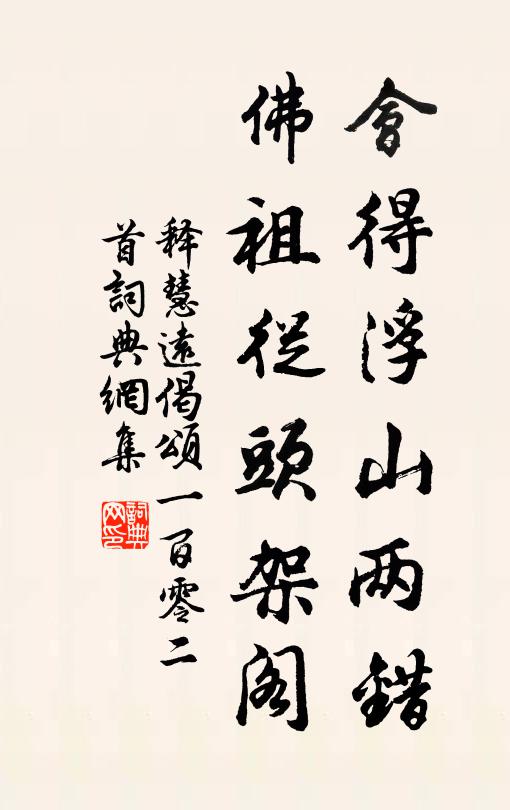 會得浮山两錯
佛祖從頭架阁
释慧遠偈頌一百零二
首詞典網集
詞典网印